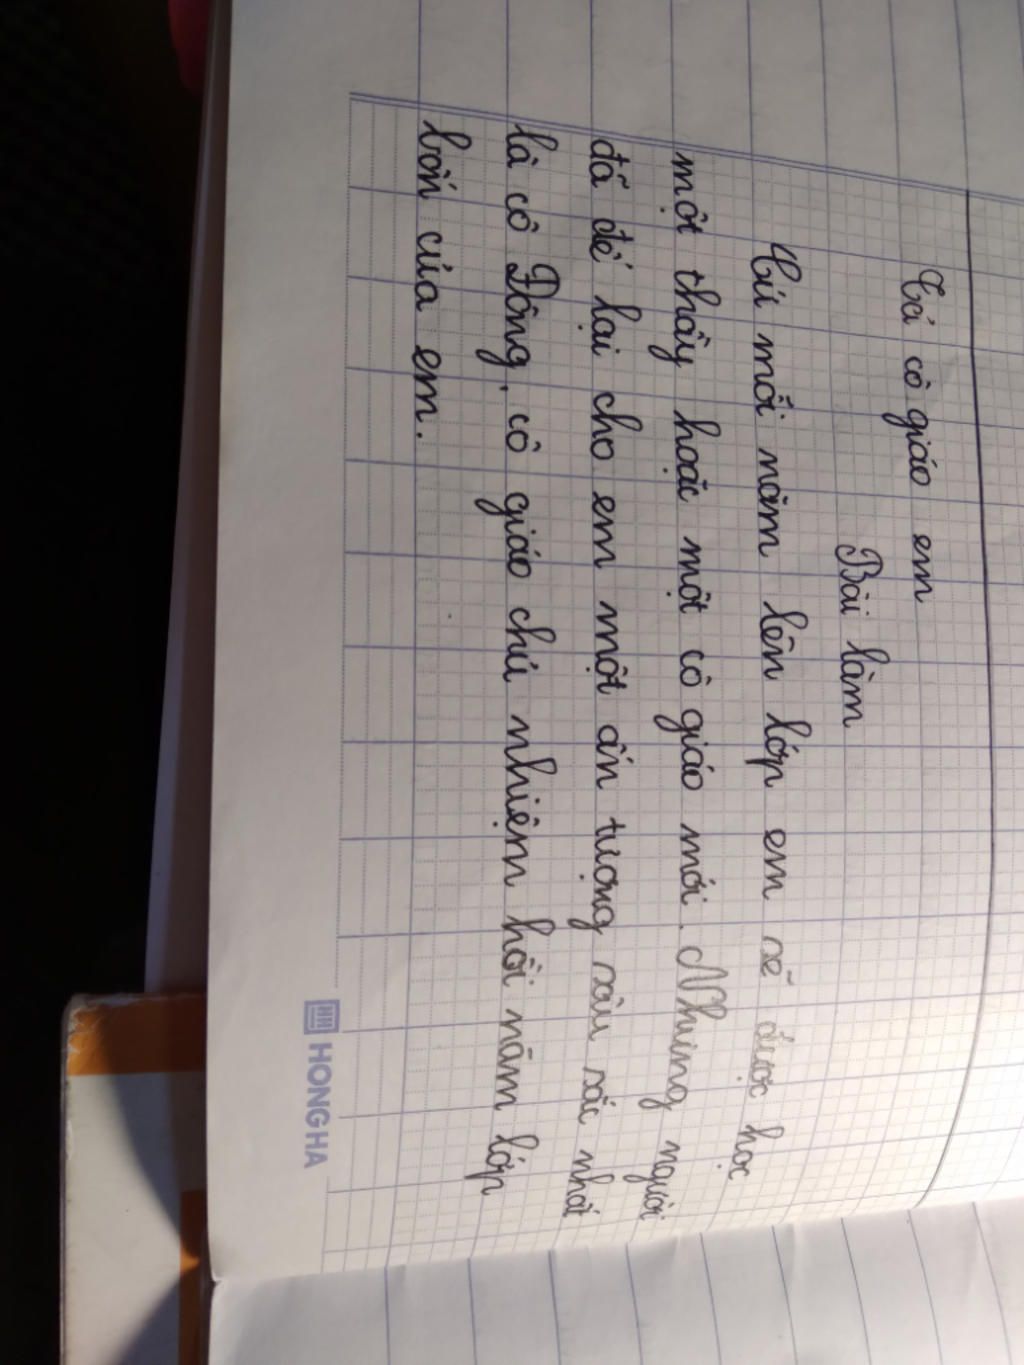 Tả cô giáo em
Bài làm
Cứ mỗi năm lên lớp em sẽ được học
một thầy hoặc một cô giáo mới. Nhưng người
đã để lại cho em một ấn tượng sâu sắc nhất
là cô Đông, cô giáo chủ nhiệm hồi năm lớp
bốn của em.
HONG HA